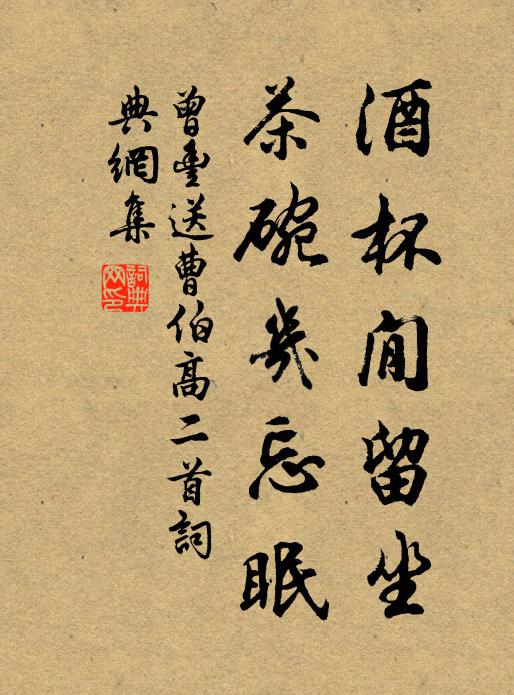 酒杯間留坐
茶碗幾忘眠
曾豐送曹伯高二首詞
典網集
詞典網印